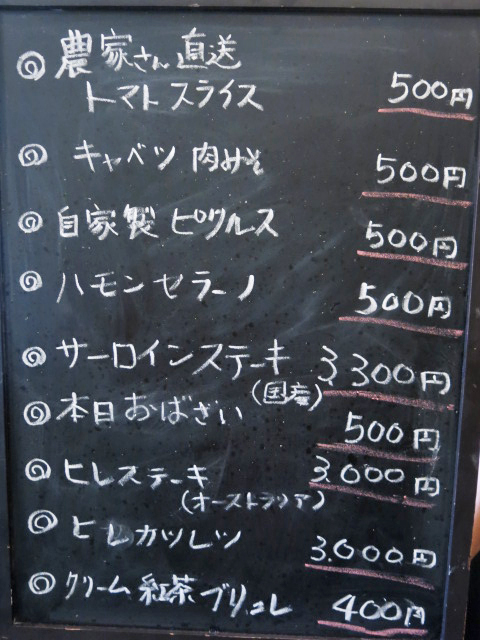 ◎ 農家さん直送
トマトスライス 500円
◎ キャベツ 肉みそ 500円
◎ 自家製 ピクルス 500円
◎ ハモンセラーノ 500円
◎ サーロインステーキ 3,300円
(国産)
◎ 本日おばざい 500円
◎ ヒレステーキ 3,000円
(オーストラリア)
◎ ヒレカツレツ 3,000円
◎ クリーム 紅茶 ブリュレ 400円